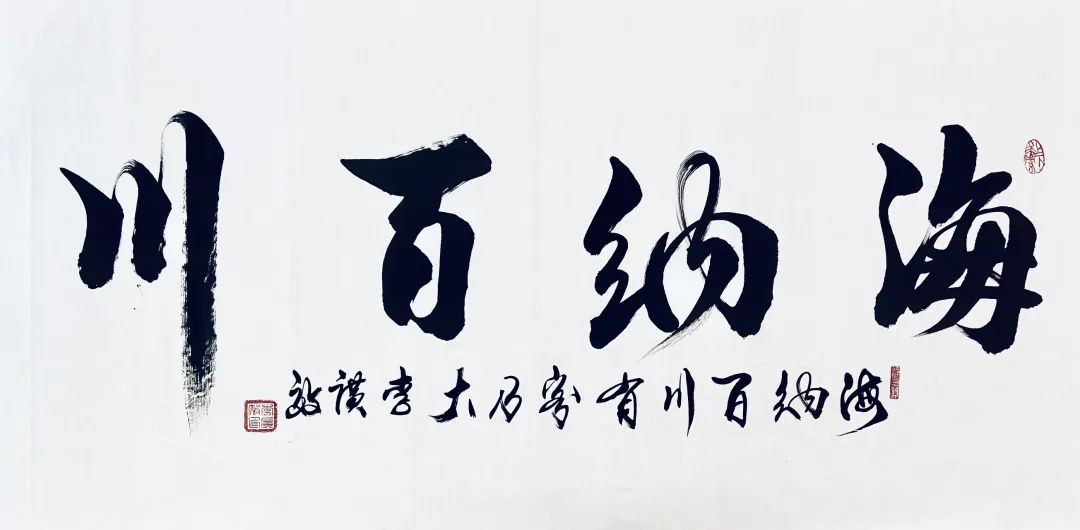 海纳百川
海纳百川有容乃大李璜敬